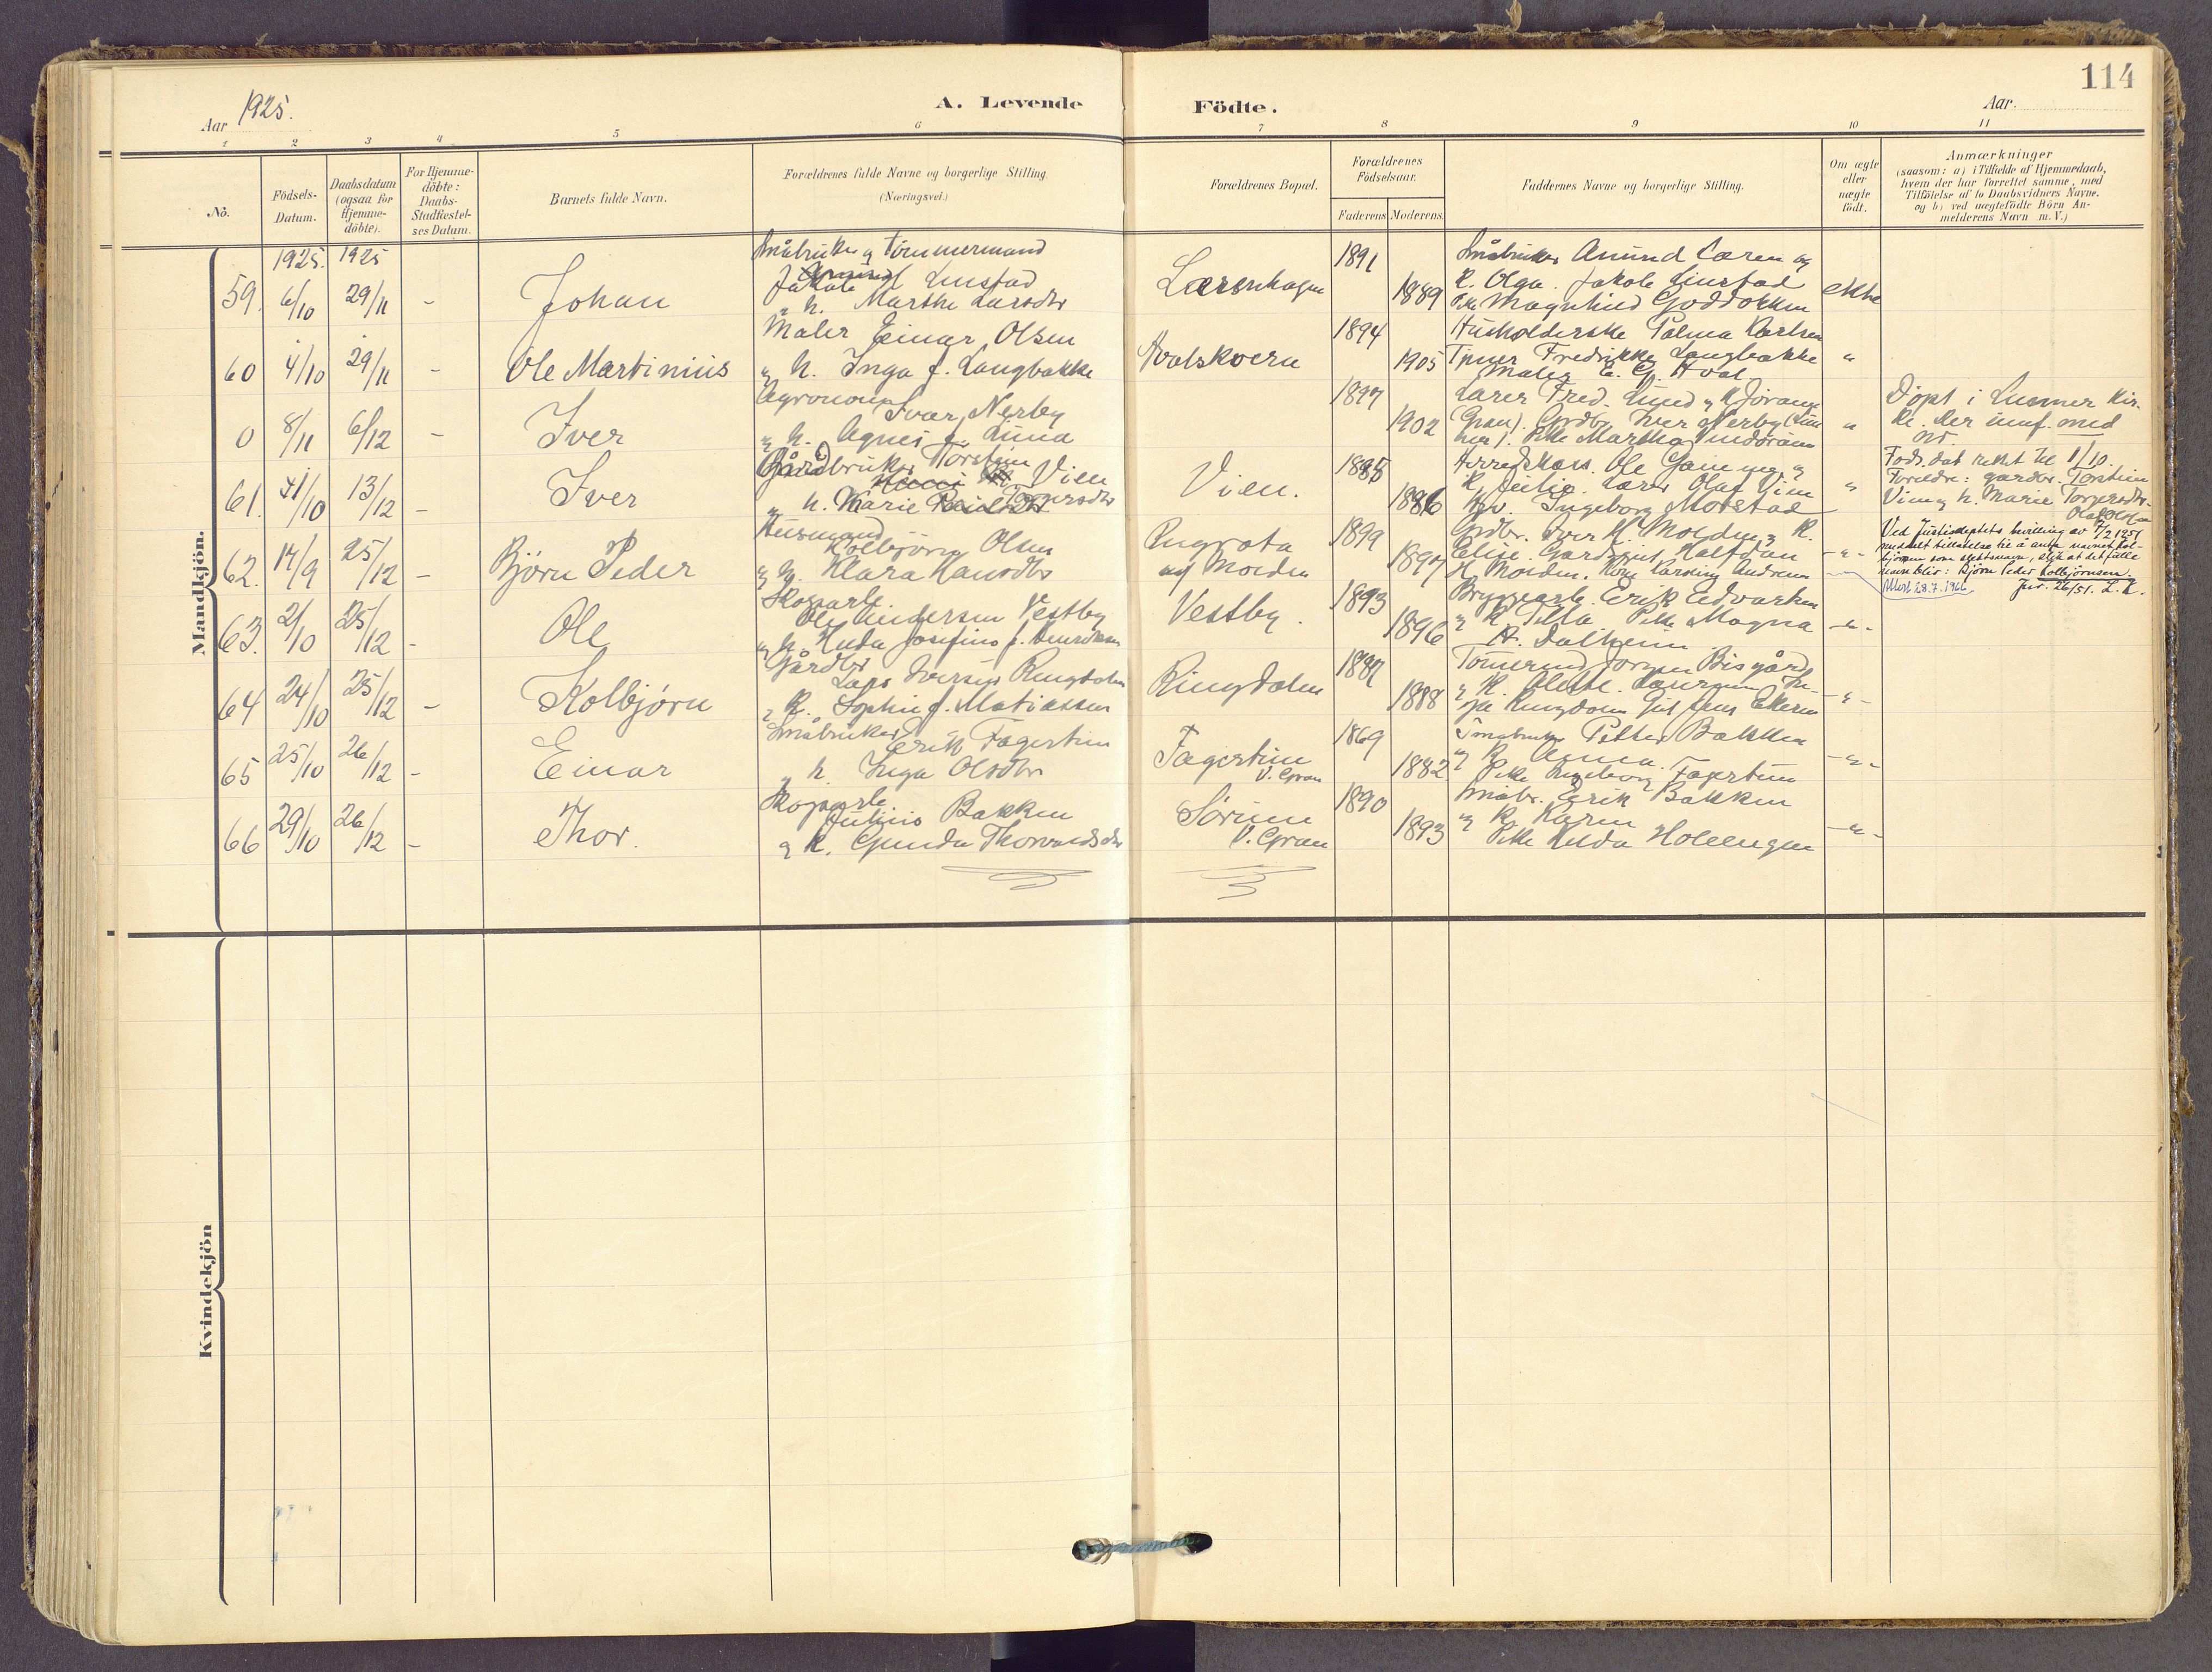 114
Aar 1925.
A. Levende Födte.
Aar
1 2 3 4 5 6 7 8 9 10 11
No.
Födsels-Datum.
Daabsdatum (ogsaa for Hjemme-döbte).
For Hjemme-döbte: Daabs-Stadfæstel-ses Datum.
Barnets fulde Navn.
Forældrenes fulde Navne og borgerlige Stilling. (Næringsvei.)
Forældrenes Bopæl.
Forældrenes Födselsaar.
Faderens Moderens.
Faddernes Navne og borgerlige Stilling.
Om ægte eller uægte födt.
Anmærkninger
(saasom: a) i Tilfælde af Hjemmedaab,
hvem der har forrettet samme, med
Tilföielse af to Daabsvidners Navne.
og b) ved uægtefödte Börn An-
melderens Navn m. V.)
Mandkjön.
1925. 1925
59. 6/10 29/11 - Johan
Småbruker og tömmermand
Jakob Linstad
og h. Marthe Larsdtr
Lærenhagen 1891 1889
Småbruker Amund Læren og
K. Olga. Jakob Linstad
Pike Magnhild Goddokken
ekte
60 4/10 29/11 - Ole Martinius
Maler Einar Olsen
og h. Inga f. Langbakke
Hvalskvern 1894 1905
Husholderske Palma Karlsen
Fredrikke Langbakke
Maler E. G. Hval
"
0 8/11 6/12 - Iver
Agronom Ivar Nerby
og h. Agnes f. Lund
1897 1902
Lærer Fred. Lund og K Jørang
(Gran). Grdbr. Iver Nerby (Lun
ner). Pike Martha
"
Döpt i Lunner kir-
ke. der innf. med
nr.
61. 1/10 13/12 - Iver
Gårdbruker Torstein Vien
og h. Marie Torgersdtr
Vien. 1885 1886
Herredskass. Ole Gamme og
K. Julie. Lærer Olaf Vien
Ingeborg Morstad
"
Föds. dat rettet til 1/10.
Foreldre: gardbr. Torstein
Vien og h. Marie Torgersdtr.
62. 14/9 25/12 - Bjørn Peder
Husmand Kolbjørn Olsen
og h. Klara Hansdtr
Rugrota av Moeden 1899 1897
Grdbr. Iver H. Moeden og K.
Eline. Gardsgut Halfdan
H. Moeden. Andrea
- " -
Ved Justisdeptets bevilling av 7/2 1951
meddelt tillatelse til å anta navnet Kol-
björnsen som slektsnavn, slik at det fulle
navn blir: Björn Peder Kolbjörnsen.
Jnr. 26/51. L. K.
Attest 28.7.1966
63. 2/10 25/12 - Ole
Skogsarb. Ole Andersen Vestby
og h. Hilda Josefine f. Henriksen
Vestby. 1893 1896
Bryggearb. Erik Edvardsen
og K. Tilla Pike Magna
A. Dalheim
- " -
64 24/10 25/12 - Kolbjørn
Gårdbr Lars Iversen Ringdalen
og K. Sophie f. Matiassen
Ringdalen 1887 1888
Jørgen Bisgård
- " -
65 25/10 26/12 - Einar
Småbruker Erik Fagertun
og h. Inga Olsdtr
Fagertun V. Gran 1869 1882
Småbruker Petter Bakken
og K Anna.
Pike Ingeborg Fagertun
- " -
66 29/10 26/12 - Thor.
Skogsarb. Julius Bakken
og K. Gunda Thorvaldsdtr
Sørum V. Gran 1890 1893
Småbr. Erik Bakken
og K. Karen
Pike Hilda Holengen
- " -
Kvindekjön